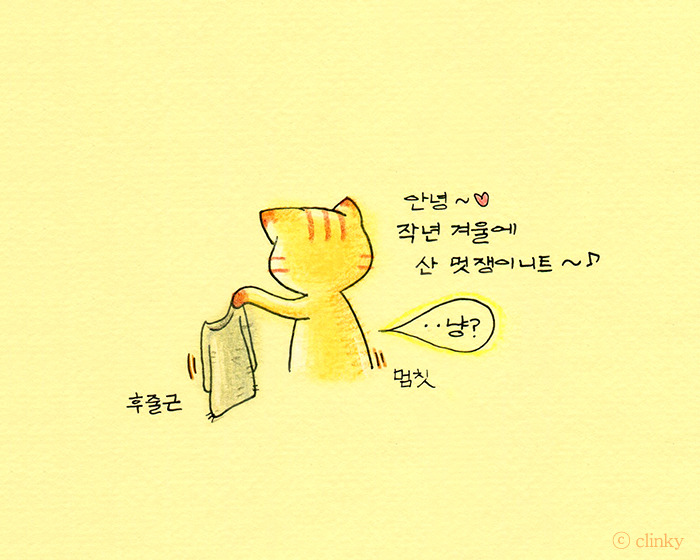 안녕~♡
작년 겨울에
산 멋쟁이니트~♪
··냥?
멈칫
후줄근
ⓒ clinky